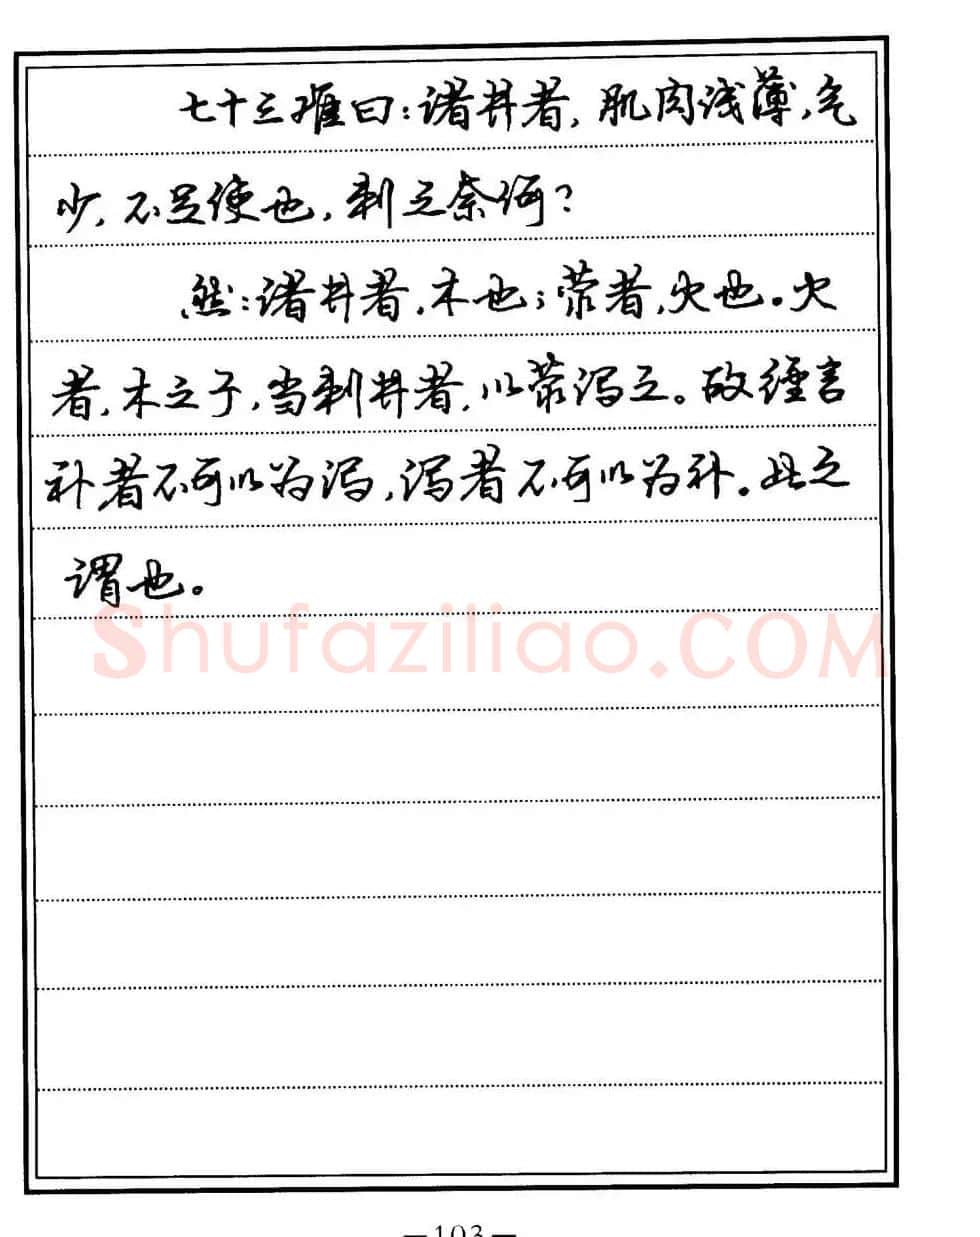 七十三难曰：诸井者，肌肉浅薄，气
少，不足使也，刺之奈何？
然：诸井者，木也；荥者，火也。火
者，木之子，当刺井者，以荥泻之。故经言
补者不可以为泻，泻者不可以为补。此之
谓也。
Shufaziliao.COM
—103—